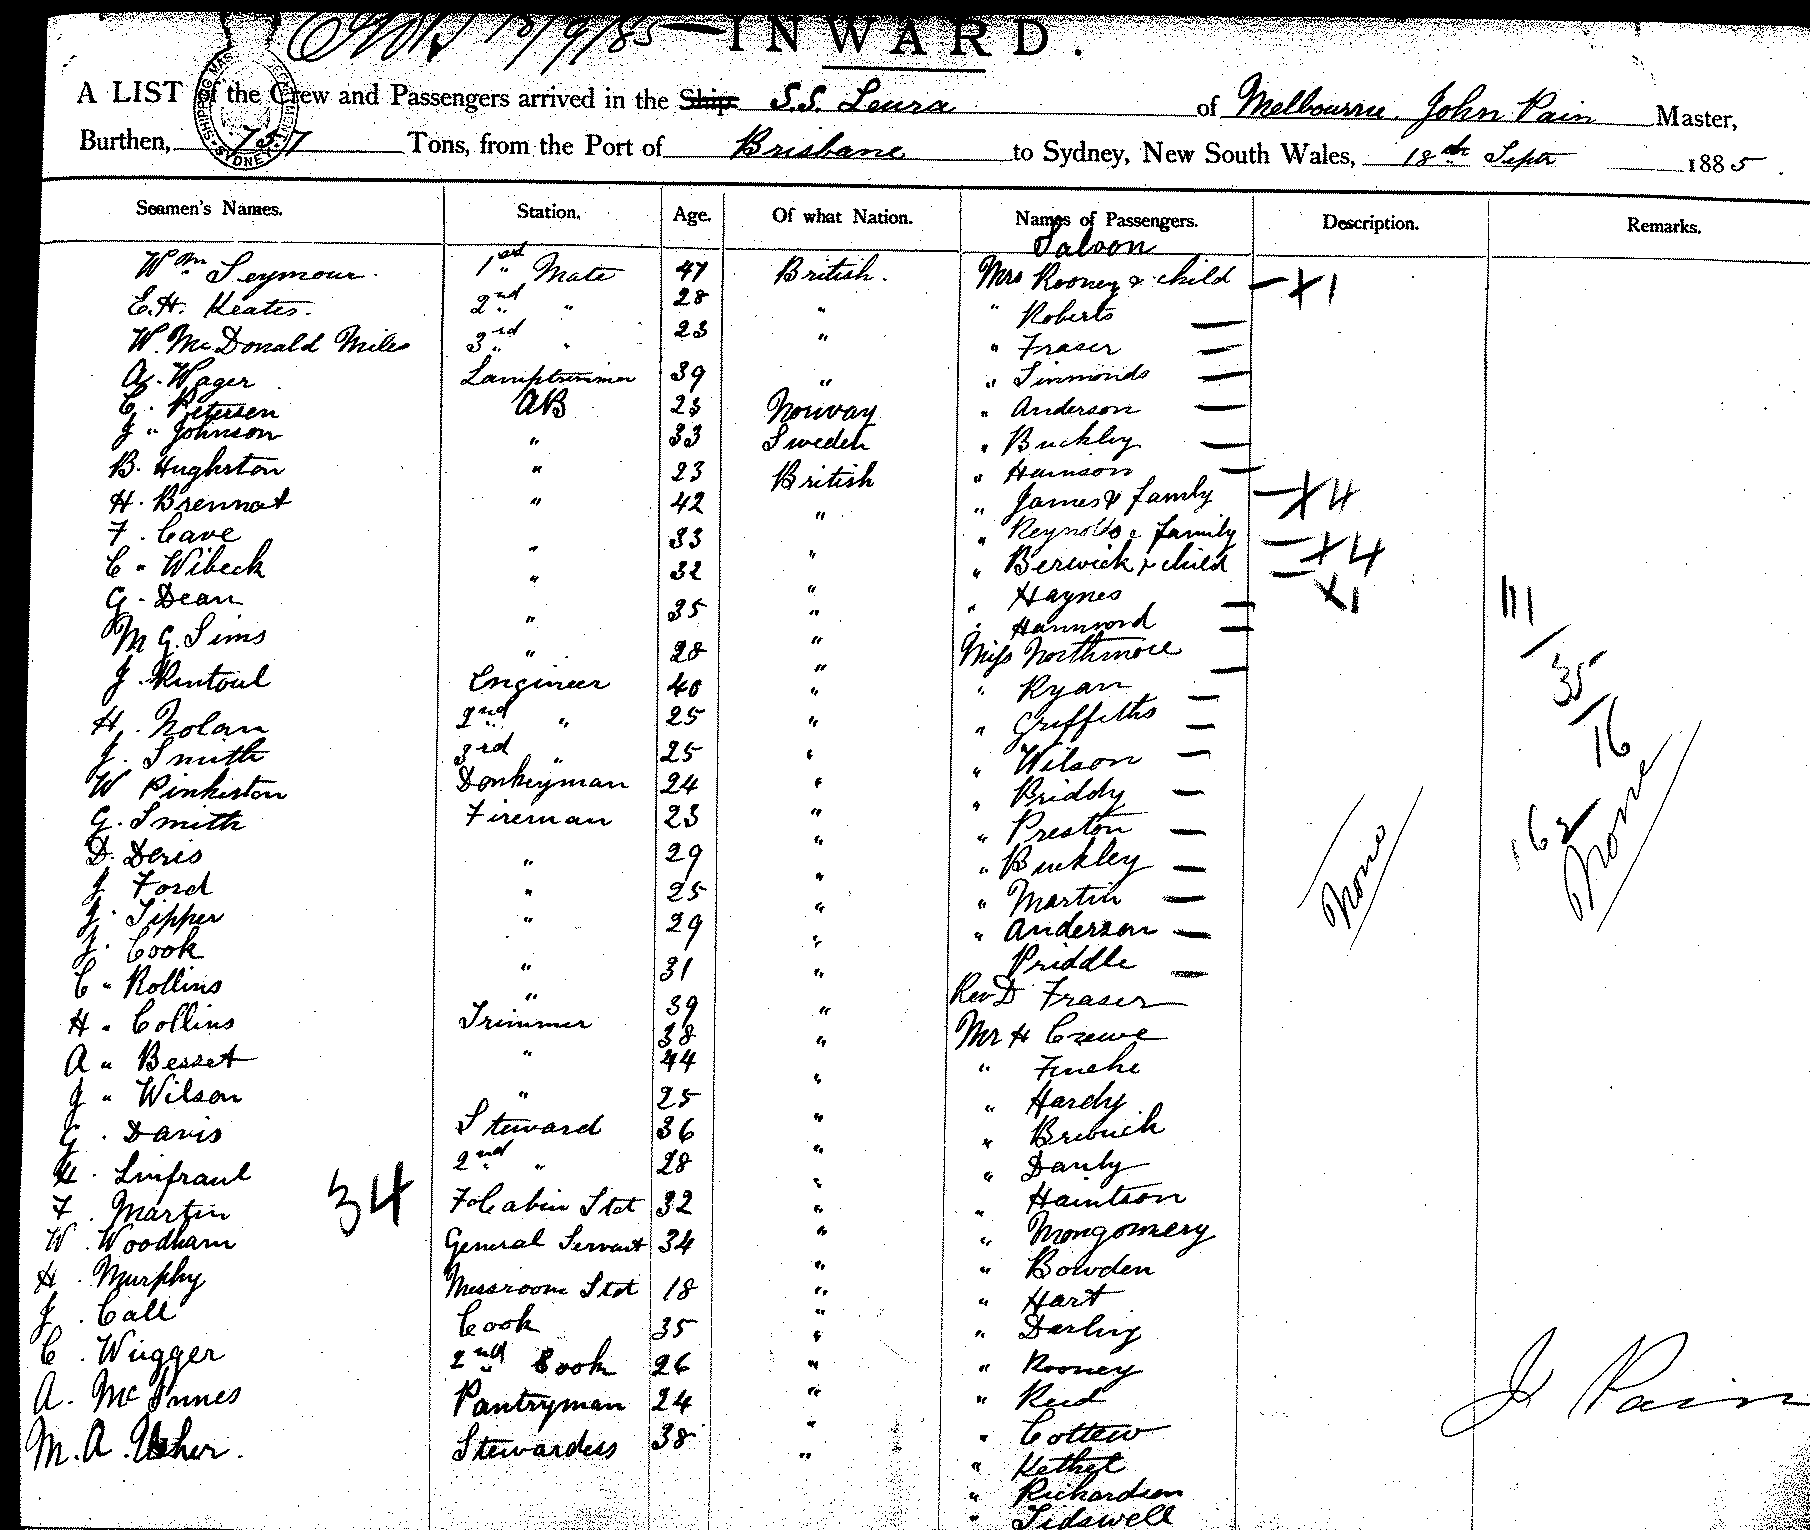 18/9/85 — INWARD.
A LIST of the Crew and Passengers arrived in the Ship S.S. Leura of Melbourne. John Pain Master,
Burthen, 757 Tons, from the Port of Brisbane to Sydney, New South Wales, 18th Sept 1885.
Seamen's Names. Station. Age. Of what Nation. Names of Passengers. Description. Remarks.
Saloon
Wm Seymour. 1st Mate 47 British. Mrs Rooney & child — X1
E.H. Keates. 2nd " 28 " " Roberts —
W. McDonald Miles 3rd " 23 " " Fraser —
A. Wager Lamptrimmer 39 " " Simmonds —
C. Petersen AB 23 Norway " Anderson —
J. Johnson " 33 Sweden " Buckley —
B. Hughston " 23 British " Harrison —
H. Brennat " 42 " " James & family — X4
F. Cave " 33 " " Reynolds & family — X4
C. Wibeck " 32 " " Berwick & child — X1
G. Dean " 35 " " Haynes —
M G. Sims " 28 " " Hammond —
J. Rintoul Engineer 40 " Miss Northmore —
H. Nolan 2nd " 25 " " Ryan —
J. Smith 3rd " 25 " " Griffiths —
W Pinkerton Donkeyman 24 " " Wilson —
G. Smith Fireman 23 " " Briddy —
D. Deris " 29 " " Preston —
J Ford " 25 " " Buckley —
J. Tipper " 29 " " Martin —
J. Cook " 31 " " Anderson —
C. Rollins " 39 " Priddle —
H. Collins Trimmer 38 " Rev D Fraser
A " Besset " 44 " Mr H Crewe
J " Wilson " 25 " "
G. Davis Steward 36 " " Hardy
2nd " 28 " "
F. Martin F Cabin Std 32 " " Danby
W. Woodham General Servant 34 " "
H. Murphy Messroom Std 18 " " Montgomery
J. Call Cook 35 " " Bowden
C. 2nd Cook 26 " " Hart
A. McInnes Pantryman 24 " " Darling
M. A. Usher. Stewardess 38 " " Rooney
" Reid
" Cottew
" Kethel
" Richardson
" Tidswell
34
111
35
16
162
None
None
J Pain